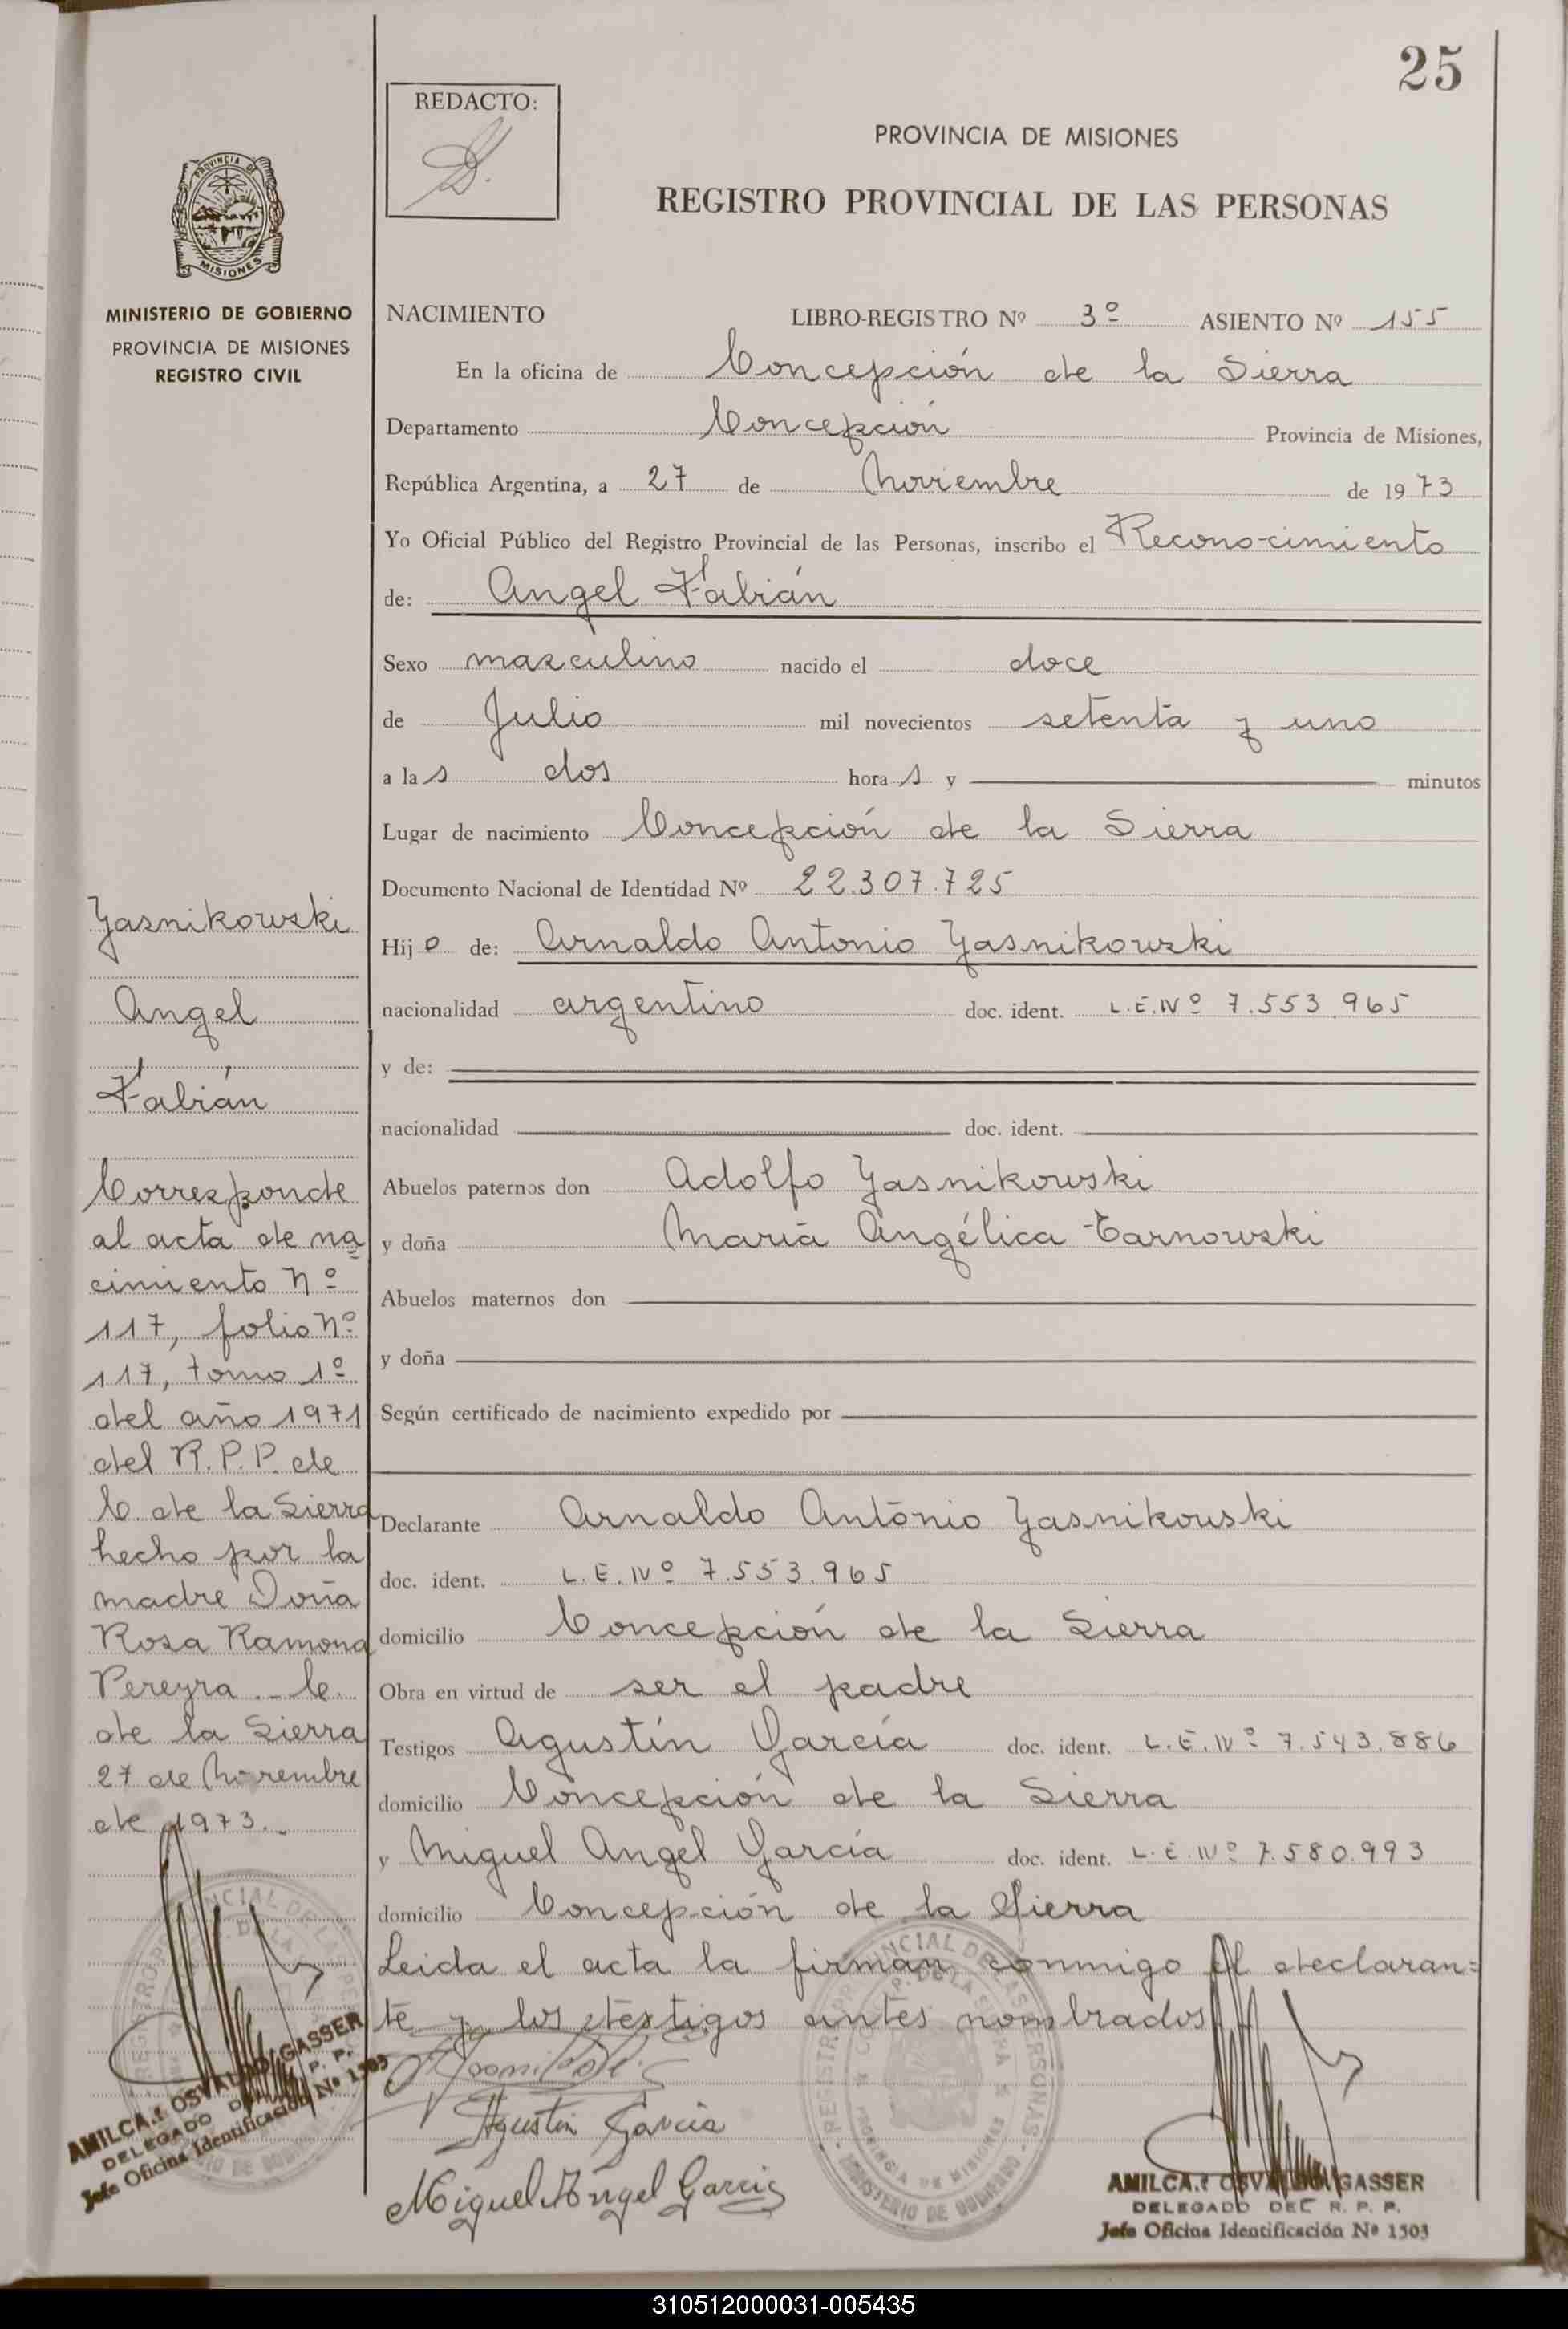 25
REDACTO:
PROVINCIA DE MISIONES
REGISTRO PROVINCIAL DE LAS PERSONAS
PROVINCIA DE
MISIONES
MINISTERIO DE GOBIERNO
PROVINCIA DE MISIONES
REGISTRO CIVIL
NACIMIENTO LIBRO-REGISTRO Nº 3º ASIENTO Nº 155
En la oficina de Concepción de la Sierra
Departamento Concepción Provincia de Misiones,
República Argentina, a 27 de Noviembre de 1973
Yo Oficial Público del Registro Provincial de las Personas, inscribo el Reconocimiento
de: Angel Fabián
Sexo masculino nacido el doce
de Julio mil novecientos setenta y uno
a las dos horas y minutos
Lugar de nacimiento Concepción de la Sierra
Documento Nacional de Identidad Nº 22.307.725
Hijo de: Arnaldo Antonio Yasnikowski
nacionalidad argentino doc. ident. L.E.Nº 7.553.965
y de:
nacionalidad doc. ident.
Abuelos paternos don Adolfo Yasnikowski
y doña María Angélica Tarnowski
Abuelos maternos don
y doña
Según certificado de nacimiento expedido por
Declarante Arnaldo Antonio Yasnikowski
doc. ident. L.E.Nº 7.553.965
domicilio Concepción de la Sierra
Obra en virtud de ser el padre
Testigos Agustín García doc. ident. L.E.Nº 7.543.886
domicilio Concepción de la Sierra
y Miguel Angel García doc. ident. L.E.Nº 7.580.993
domicilio Concepción de la Sierra
Leida el acta la firman conmigo el declaran=
te y los testigos antes nombrados
Agustin Garcia
Miguel Angel Garcia
AMILCAR OSVALDO GASSER
DELEGADO DEL R. P. P.
Jefe Oficina Identificación Nº 1503
Yasnikowski
Angel
Fabián
Corresponde
al acta de na
cimiento Nº
117, folio Nº
117, tomo 1º
del año 1971
del R.P.P. de
C. de la Sierra
hecho por la
madre Doña
Rosa Ramona
Pereyra.- C.
de la Sierra
27 de Noviembre
de 1973.-
AMILCAR OSVALDO GASSER
DELEGADO DEL R. P. P.
Jefe Oficina Identificación Nº 1503
310512000031-005435